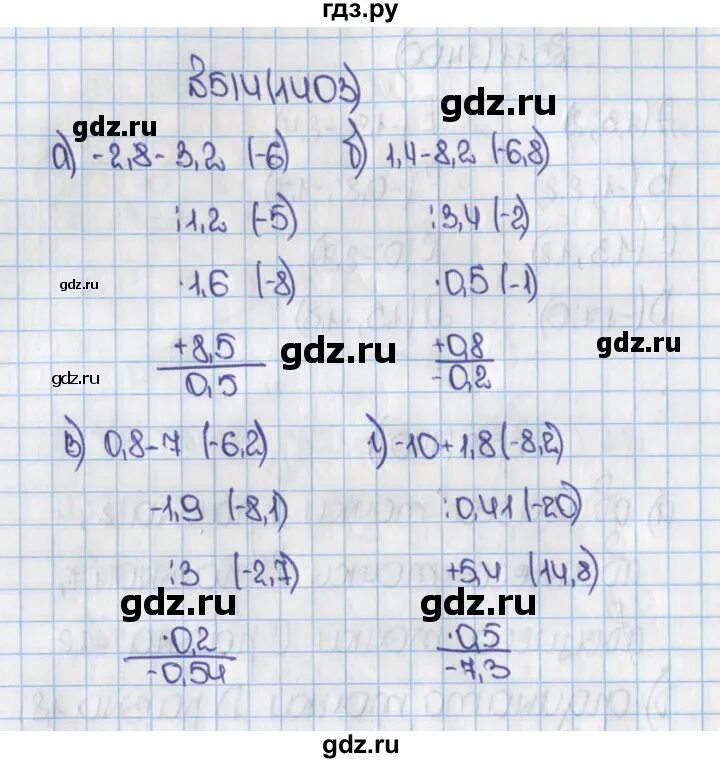 гдз.ру
В514(1403)
gdz.ru
gdz.ru
а) -2,8-3,2 (-6) б) 1,4-8,2 (-6,8)
:1,2 (-5) :3,4 (-2)
gdz.ru ·1,6 (-8) ·0,5 (-1)
+8,5 gdz.ru +0,8 gdz.ru
gdz.ru 0,5 -0,2
в) 0,8-7 (-6,2) г) -10+1,8 (-8,2)
-1,9 (-8,1) :0,41 (-20)
:3 (-2,7) +5,4 (14,8)
gdz.ru gdz.ru
·0,2 ·0,5
-0,54 -7,3
gdz.ru